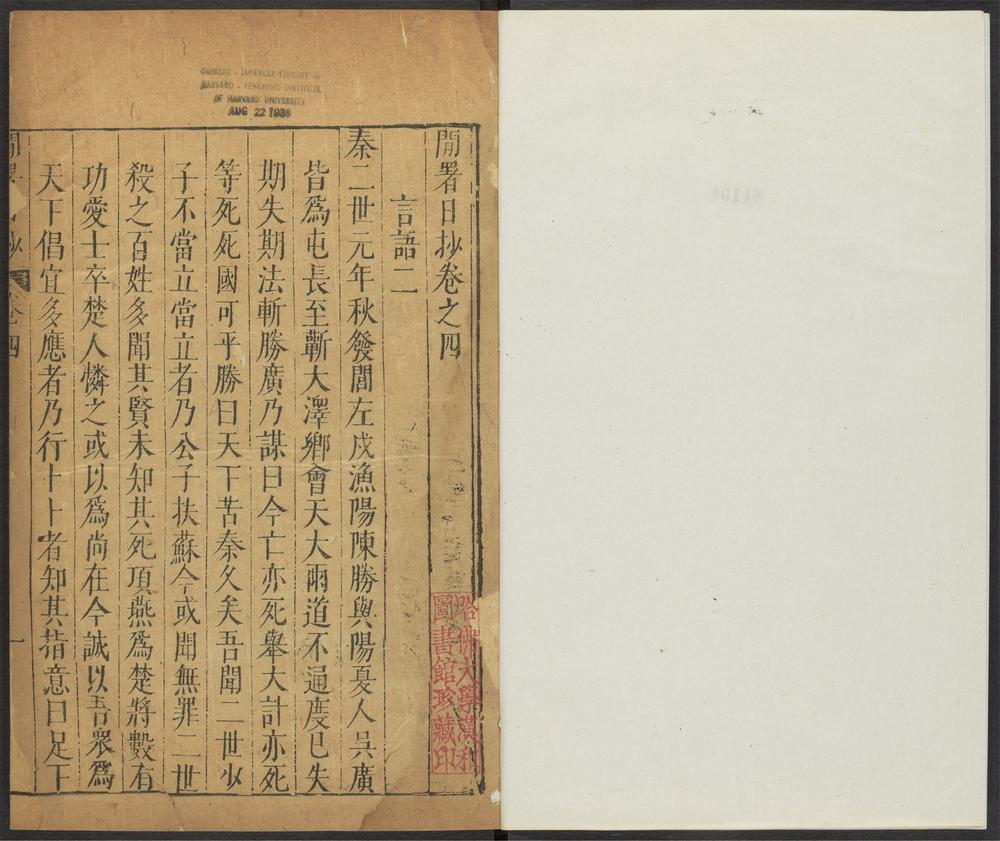 CHINESE - JAPANESE LIBRARY OF
HARVARD - YENCHING INSTITUTE
OF HARVARD UNIVERSITY
AUG 22 1936
閒署日抄卷之四
言語二
秦二世元年秋發閭左戍漁陽陳勝與陽夏人吳廣
皆爲屯長至蘄大澤鄉會天大雨道不通度已失
期失期法斬勝廣乃謀曰今亡亦死舉大計亦死
等死死國可乎勝曰天下苦秦久矣吾聞二世少
子不當立當立者乃公子扶蘇今或聞無罪二世
殺之百姓多聞其賢未知其死項燕爲楚將數有
功愛士卒楚人憐之或以爲尚在今誠以吾眾爲
天下倡宜多應者乃行卜卜者知其指意曰足下
卷四
一
哈佛大學漢和
圖書館珍藏印